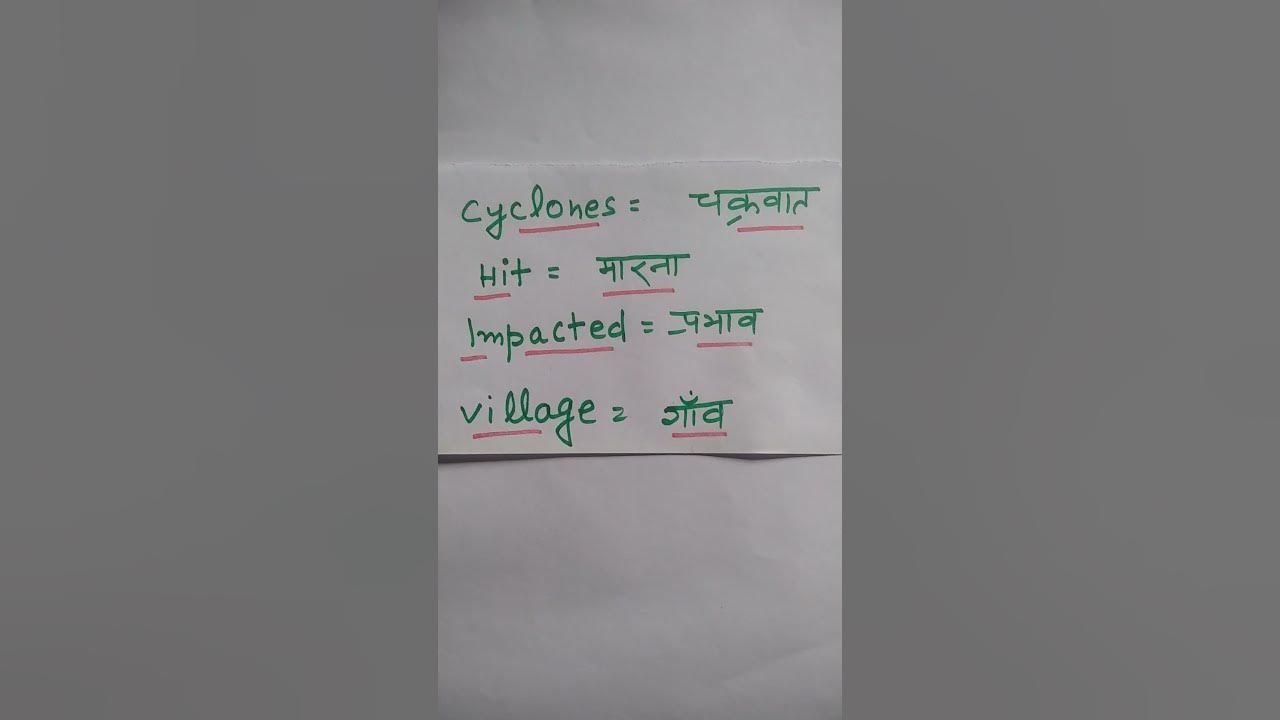 Cyclones = चक्रवात
Hit = मारना
Impacted = प्रभाव
village = गाँव